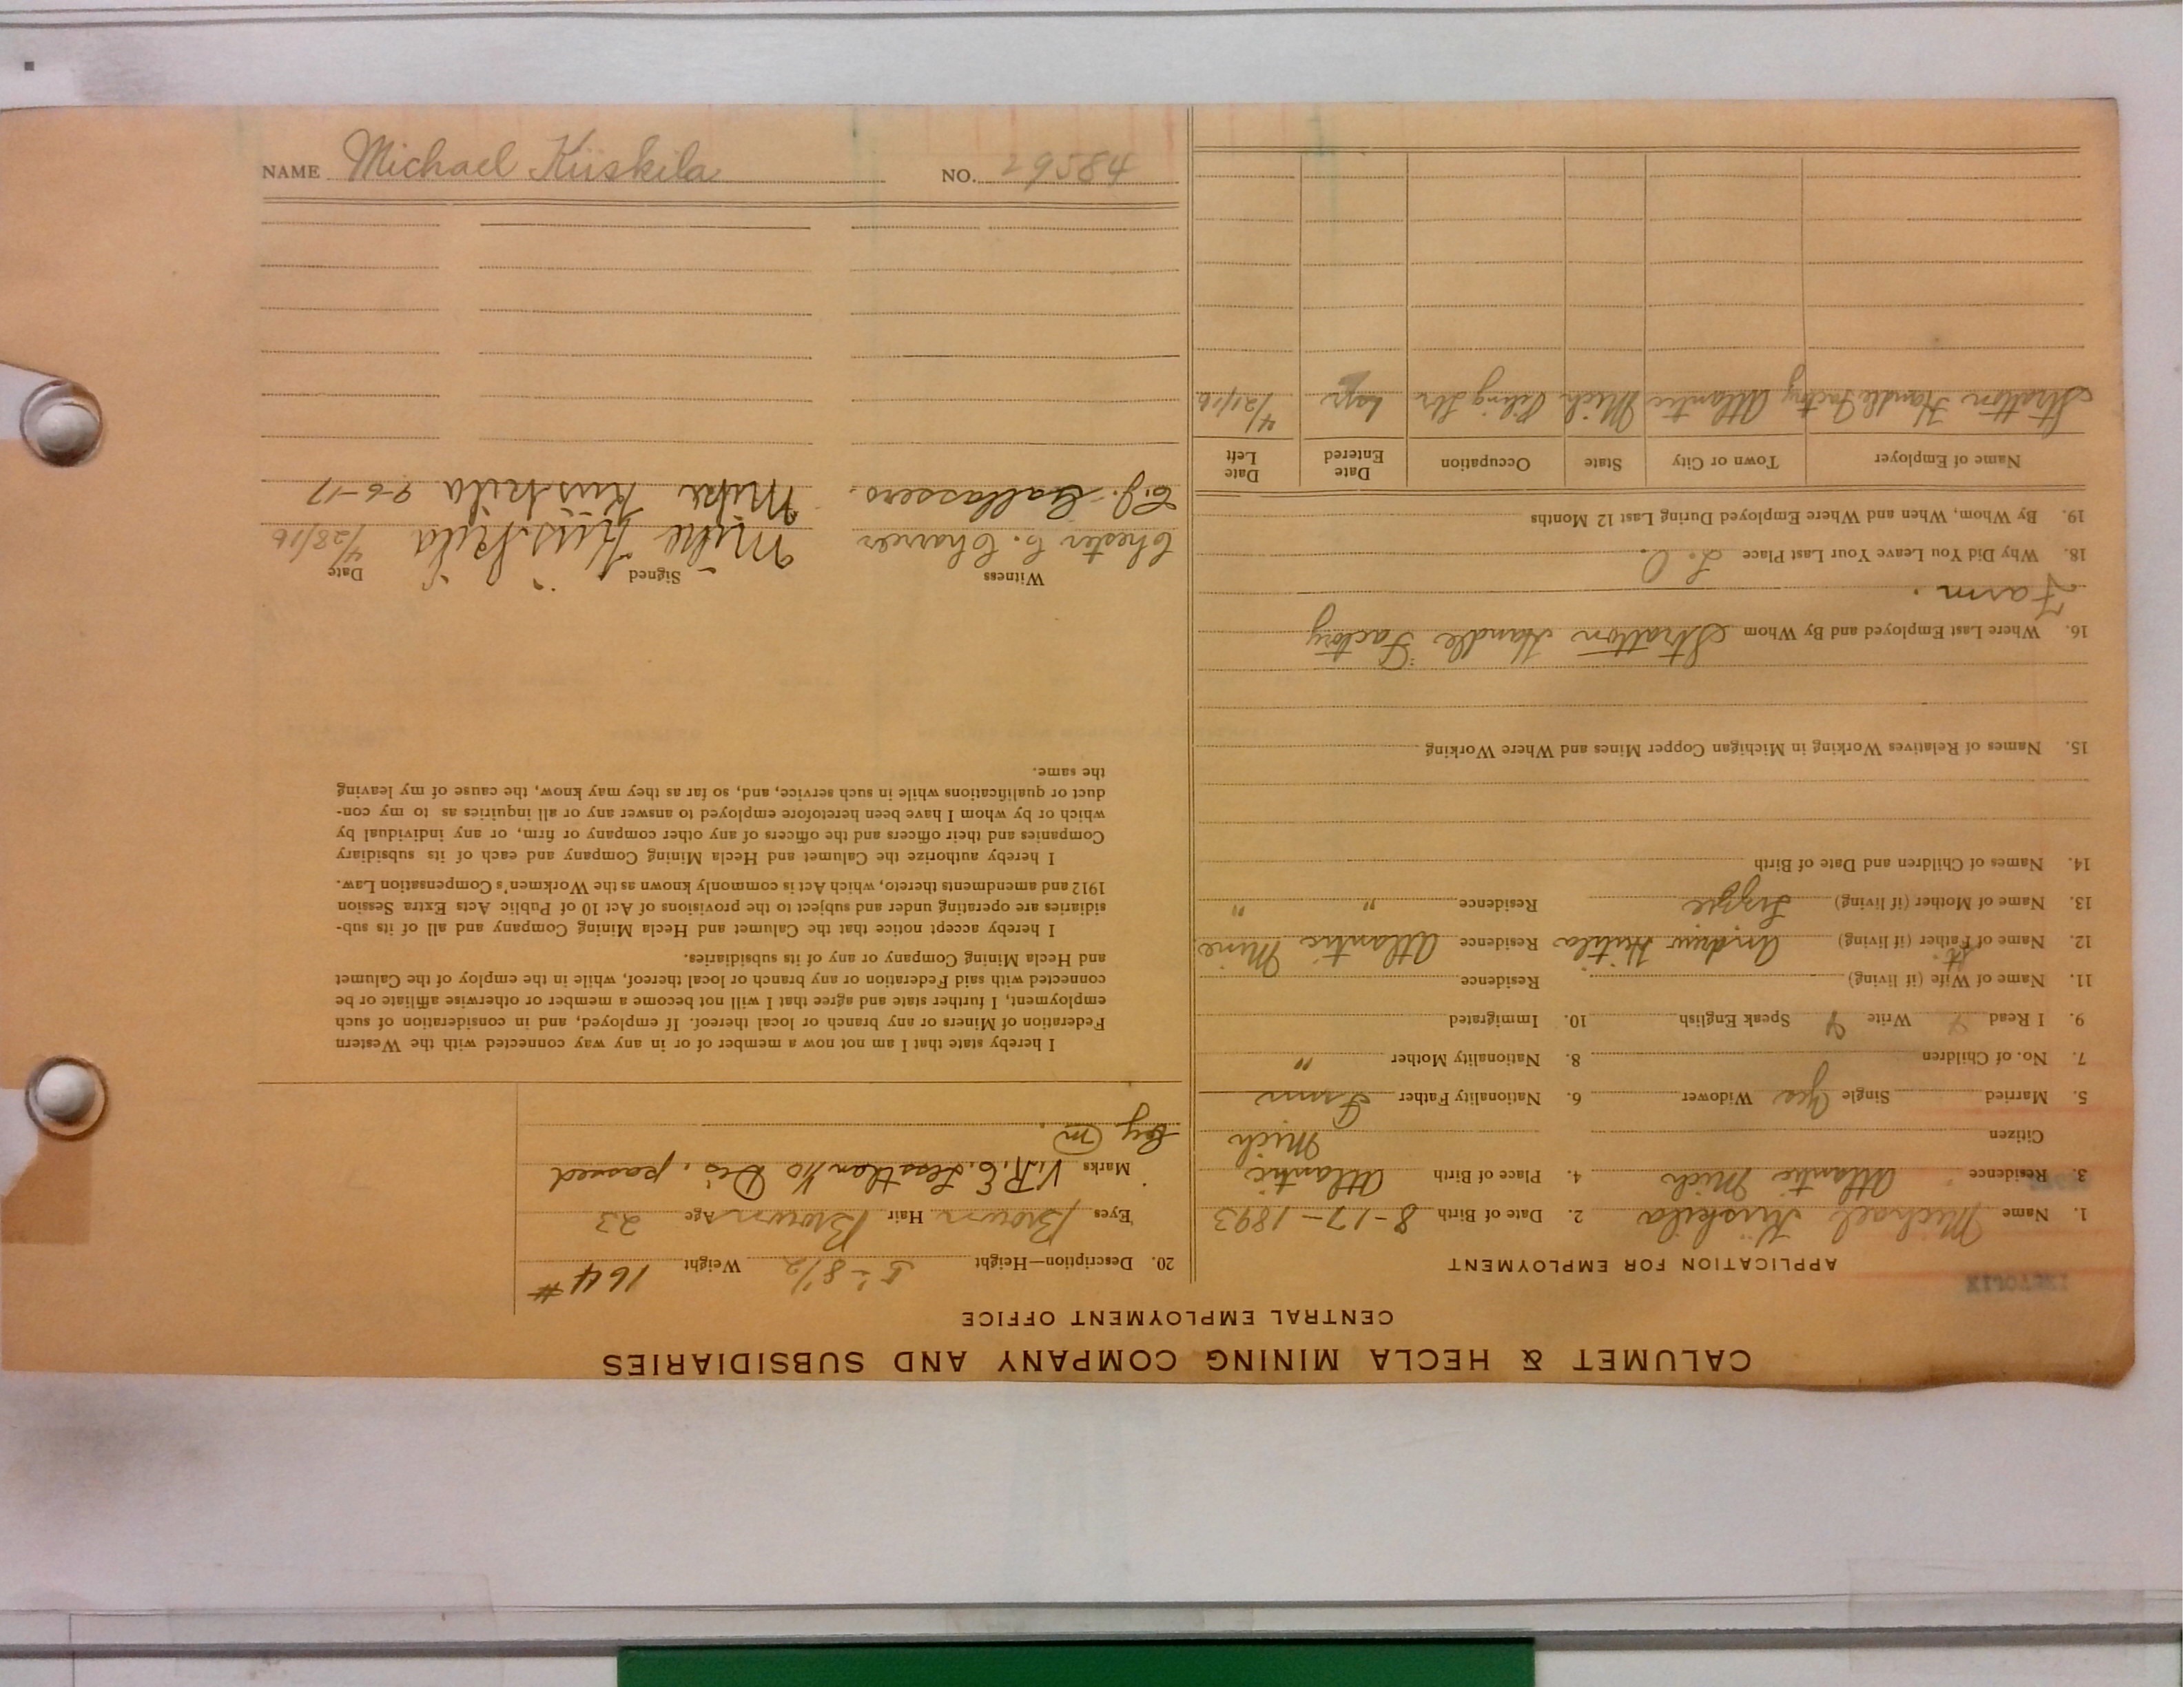 CALUMET & HECLA MINING COMPANY AND SUBSIDIARIES
CENTRAL EMPLOYMENT OFFICE
APPLICATION FOR EMPLOYMENT
1. Name Michael Kiiskila 2. Date of Birth 8-17-1893
3. Residence Atlantic Mich 4. Place of Birth Atlantic
Citizen Mich
5. Married Single Yes Widower 6. Nationality Father Finn
7. No. of Children 8. Nationality Mother "
9. I Read Write Speak English 10. Immigrated
11. Name of Wife (if living) Residence
12. Name of Father (if living) Andrew Residence Atlantic Mine
13. Name of Mother (if living) Lizzie Residence " "
14. Names of Children and Date of Birth
15. Names of Relatives Working in Michigan Copper Mines and Where Working
16. Where Last Employed and By Whom Stratton Handle Factory
Farm.
18. Why Did You Leave Your Last Place
19. By Whom, When and Where Employed During Last 12 Months
Name of Employer Town or City State Occupation Date Entered Date Left
Stratton Handle Factory Atlantic Mich 4/21/16
20. Description—Height 5-8 1/2 Weight 164 #
Eyes Brown Hair Brown Age 23
Marks V.R.E. Less than 1/10 Dis, passed
by m.
I hereby state that I am not now a member of or in any way connected with the Western
Federation of Miners or any branch or local thereof. If employed, and in consideration of such
employment, I further state and agree that I will not become a member or otherwise affiliate or be
connected with said Federation or any branch or local thereof, while in the employ of the Calumet
and Hecla Mining Company or any of its subsidiaries.
I hereby accept notice that the Calumet and Hecla Mining Company and all of its sub-
sidiaries are operating under and subject to the provisions of Act 10 of Public Acts Extra Session
1912 and amendments thereto, which Act is commonly known as the Workmen's Compensation Law.
I hereby authorize the Calumet and Hecla Mining Company and each of its subsidiary
Companies and their officers and the officers of any other company or firm, or any individual by
which or by whom I have been heretofore employed to answer any or all inquiries as to my con-
duct or qualifications while in such service, and, so far as they may know, the cause of my leaving
the same.
Witness Signed Date
Chester C. Charrier Mike Kiiskila 4/28/16
C.J. Gallassero. Mike Kiiskila 9-6-17
NAME Michael Kiiskila NO. 29584